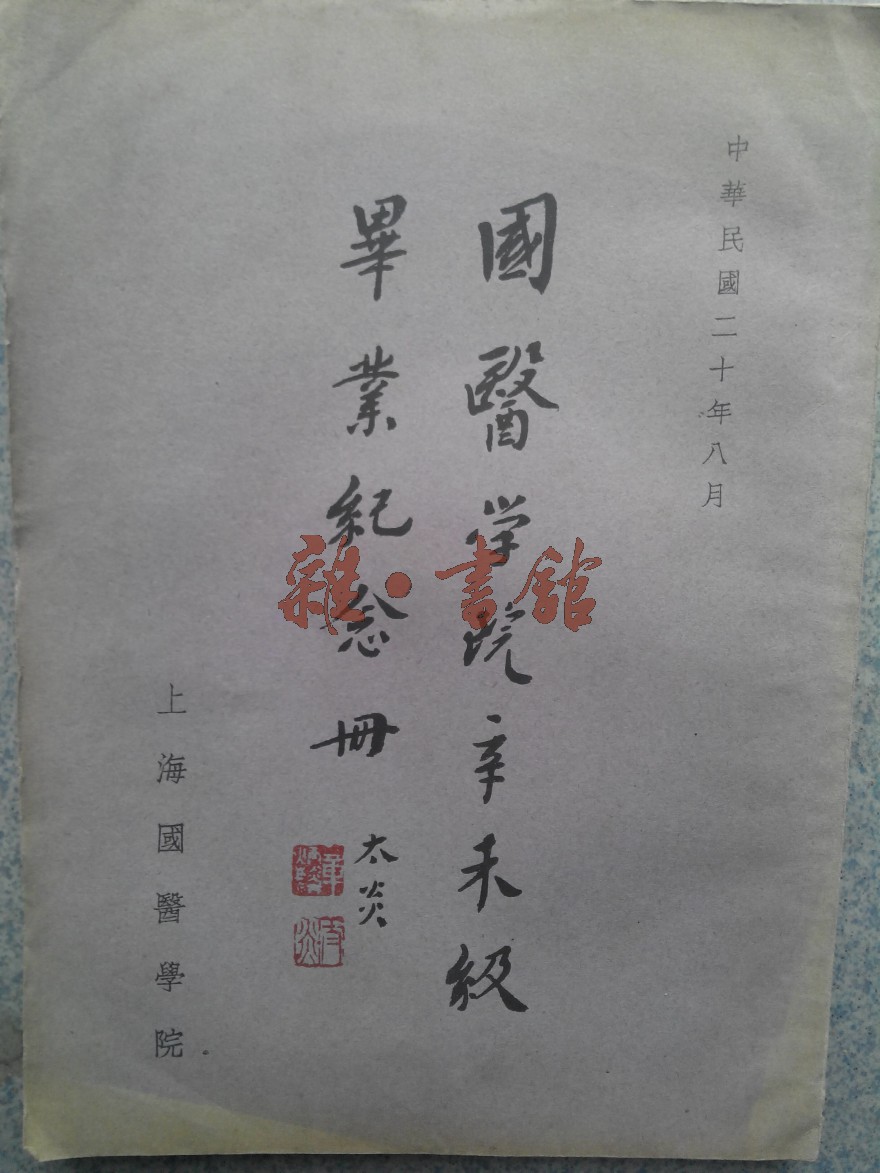 中華民國二十年八月
國醫学院辛未級
畢業紀念冊
太炎
上海國醫學院
雜·書館